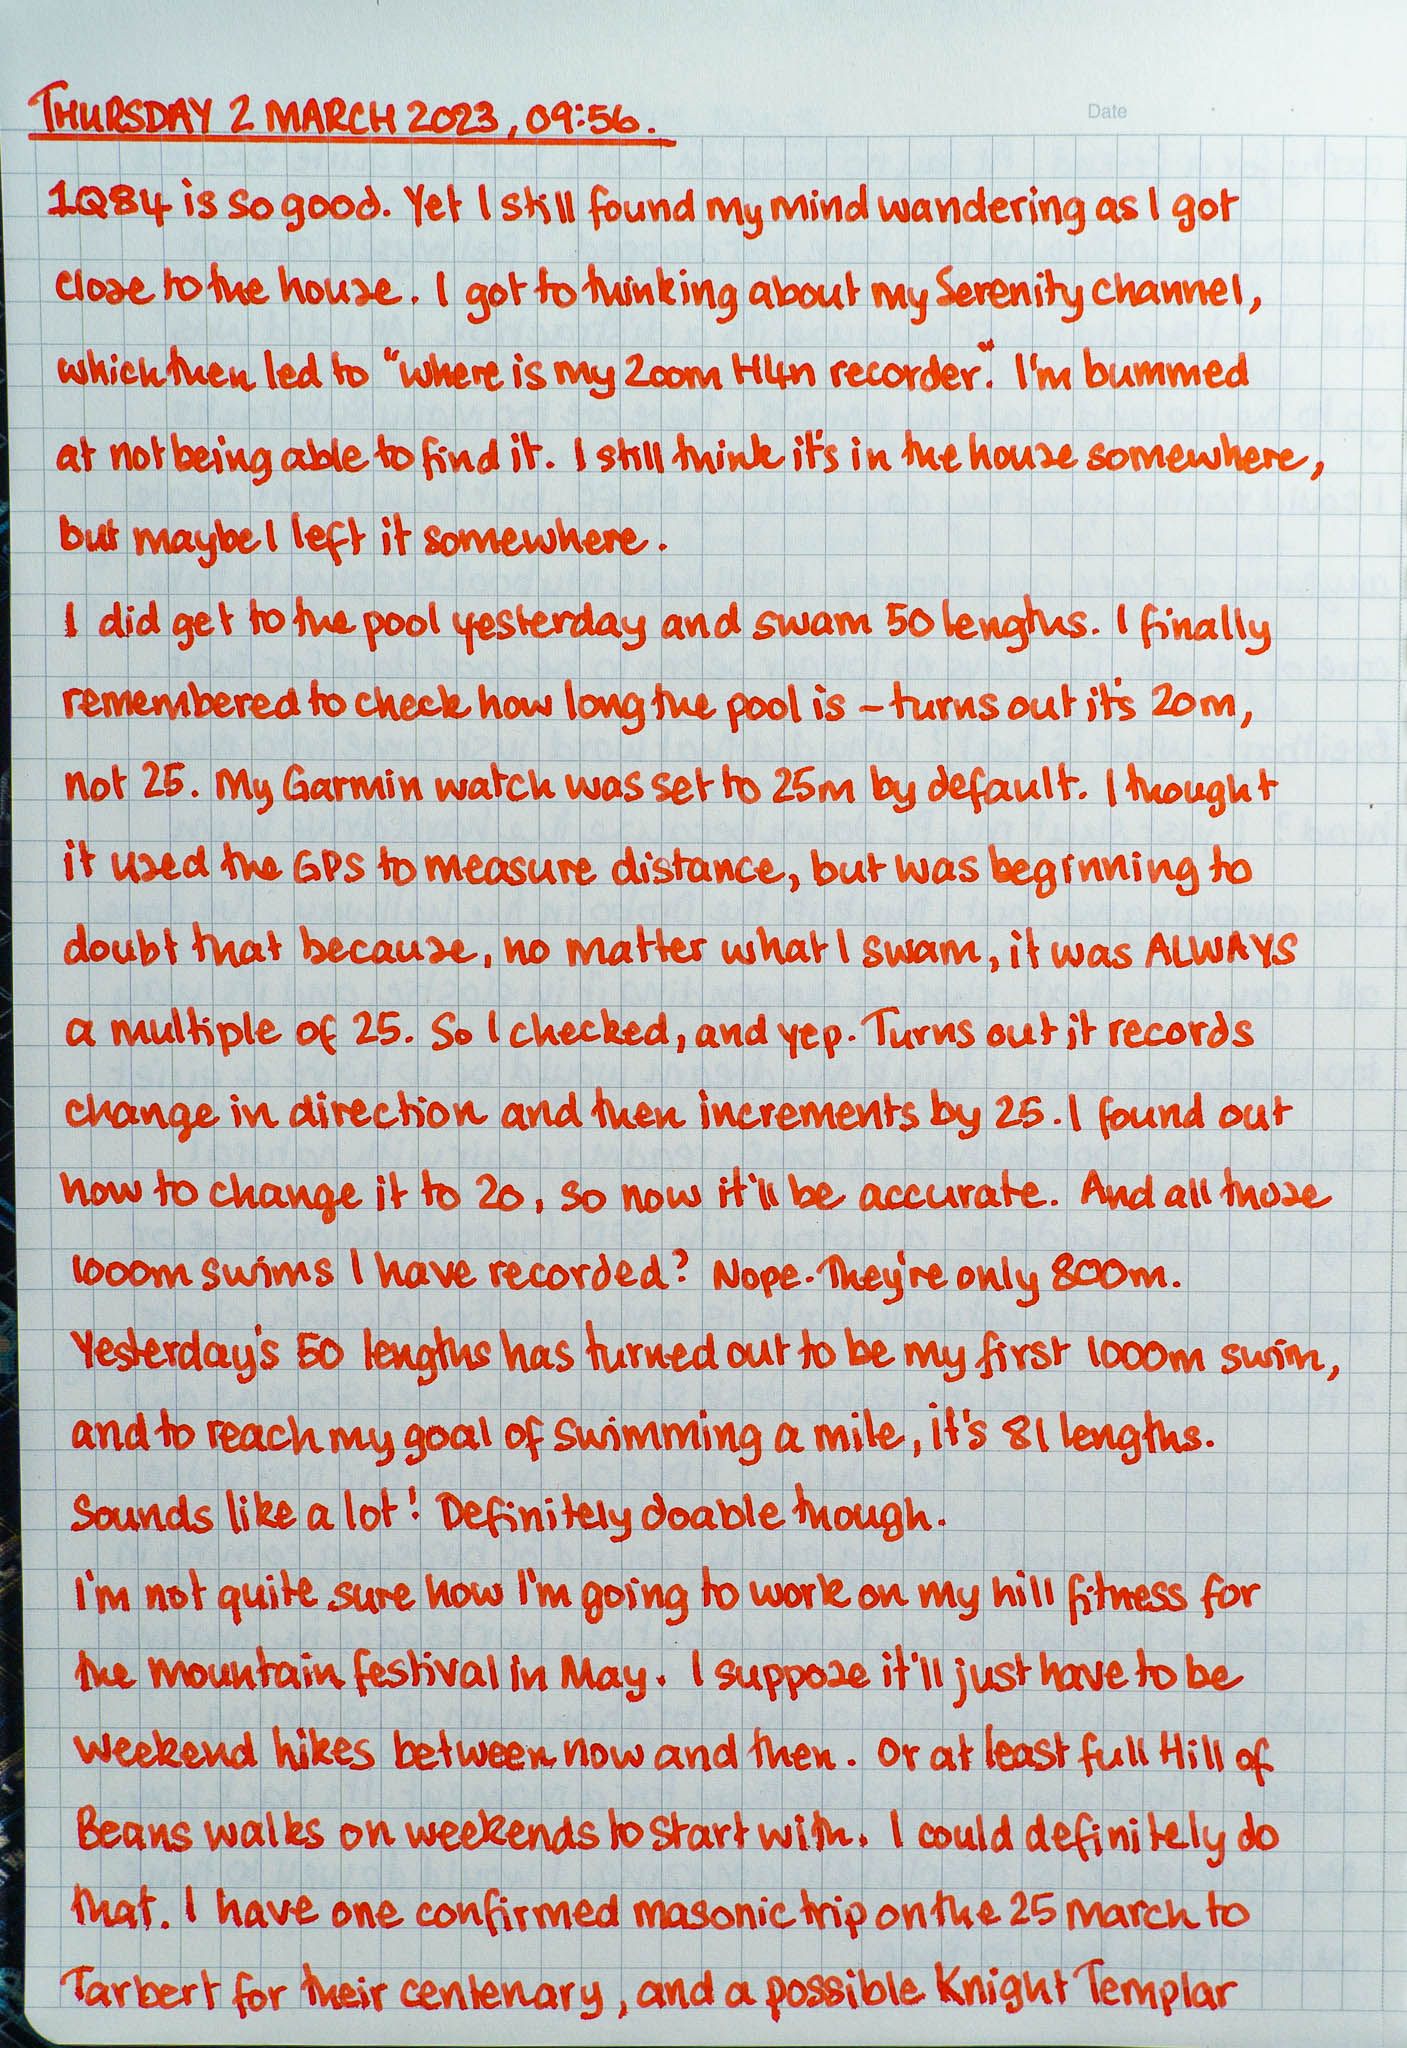 Date
THURSDAY 2 MARCH 2023, 09:56.
1Q84 is so good. Yet I still found my mind wandering as I got
close to the house. I got to thinking about my Serenity channel,
which then led to "where is my Zoom H4n recorder". I'm bummed
at not being able to find it. I still think it's in the house somewhere,
but maybe I left it somewhere.
I did get to the pool yesterday and swam 50 lengths. I finally
remembered to check how long the pool is – turns out it's 20m,
not 25. My Garmin watch was set to 25m by default. I thought
it used the GPS to measure distance, but was beginning to
doubt that because, no matter what I swam, it was ALWAYS
a multiple of 25. So I checked, and yep. Turns out it records
change in direction and then increments by 25. I found out
how to change it to 20, so now it'll be accurate. And all those
1000m swims I have recorded? Nope. They're only 800m.
Yesterday's 50 lengths has turned out to be my first 1000m swim,
and to reach my goal of swimming a mile, it's 81 lengths.
Sounds like a lot! Definitely doable though.
I'm not quite sure how I'm going to work on my hill fitness for
the mountain festival in May. I suppose it'll just have to be
weekend hikes between now and then. Or at least full Hill of
Beans walks on weekends to start with. I could definitely do
that. I have one confirmed masonic trip on the 25 March to
Tarbert for their centenary, and a possible Knight Templar